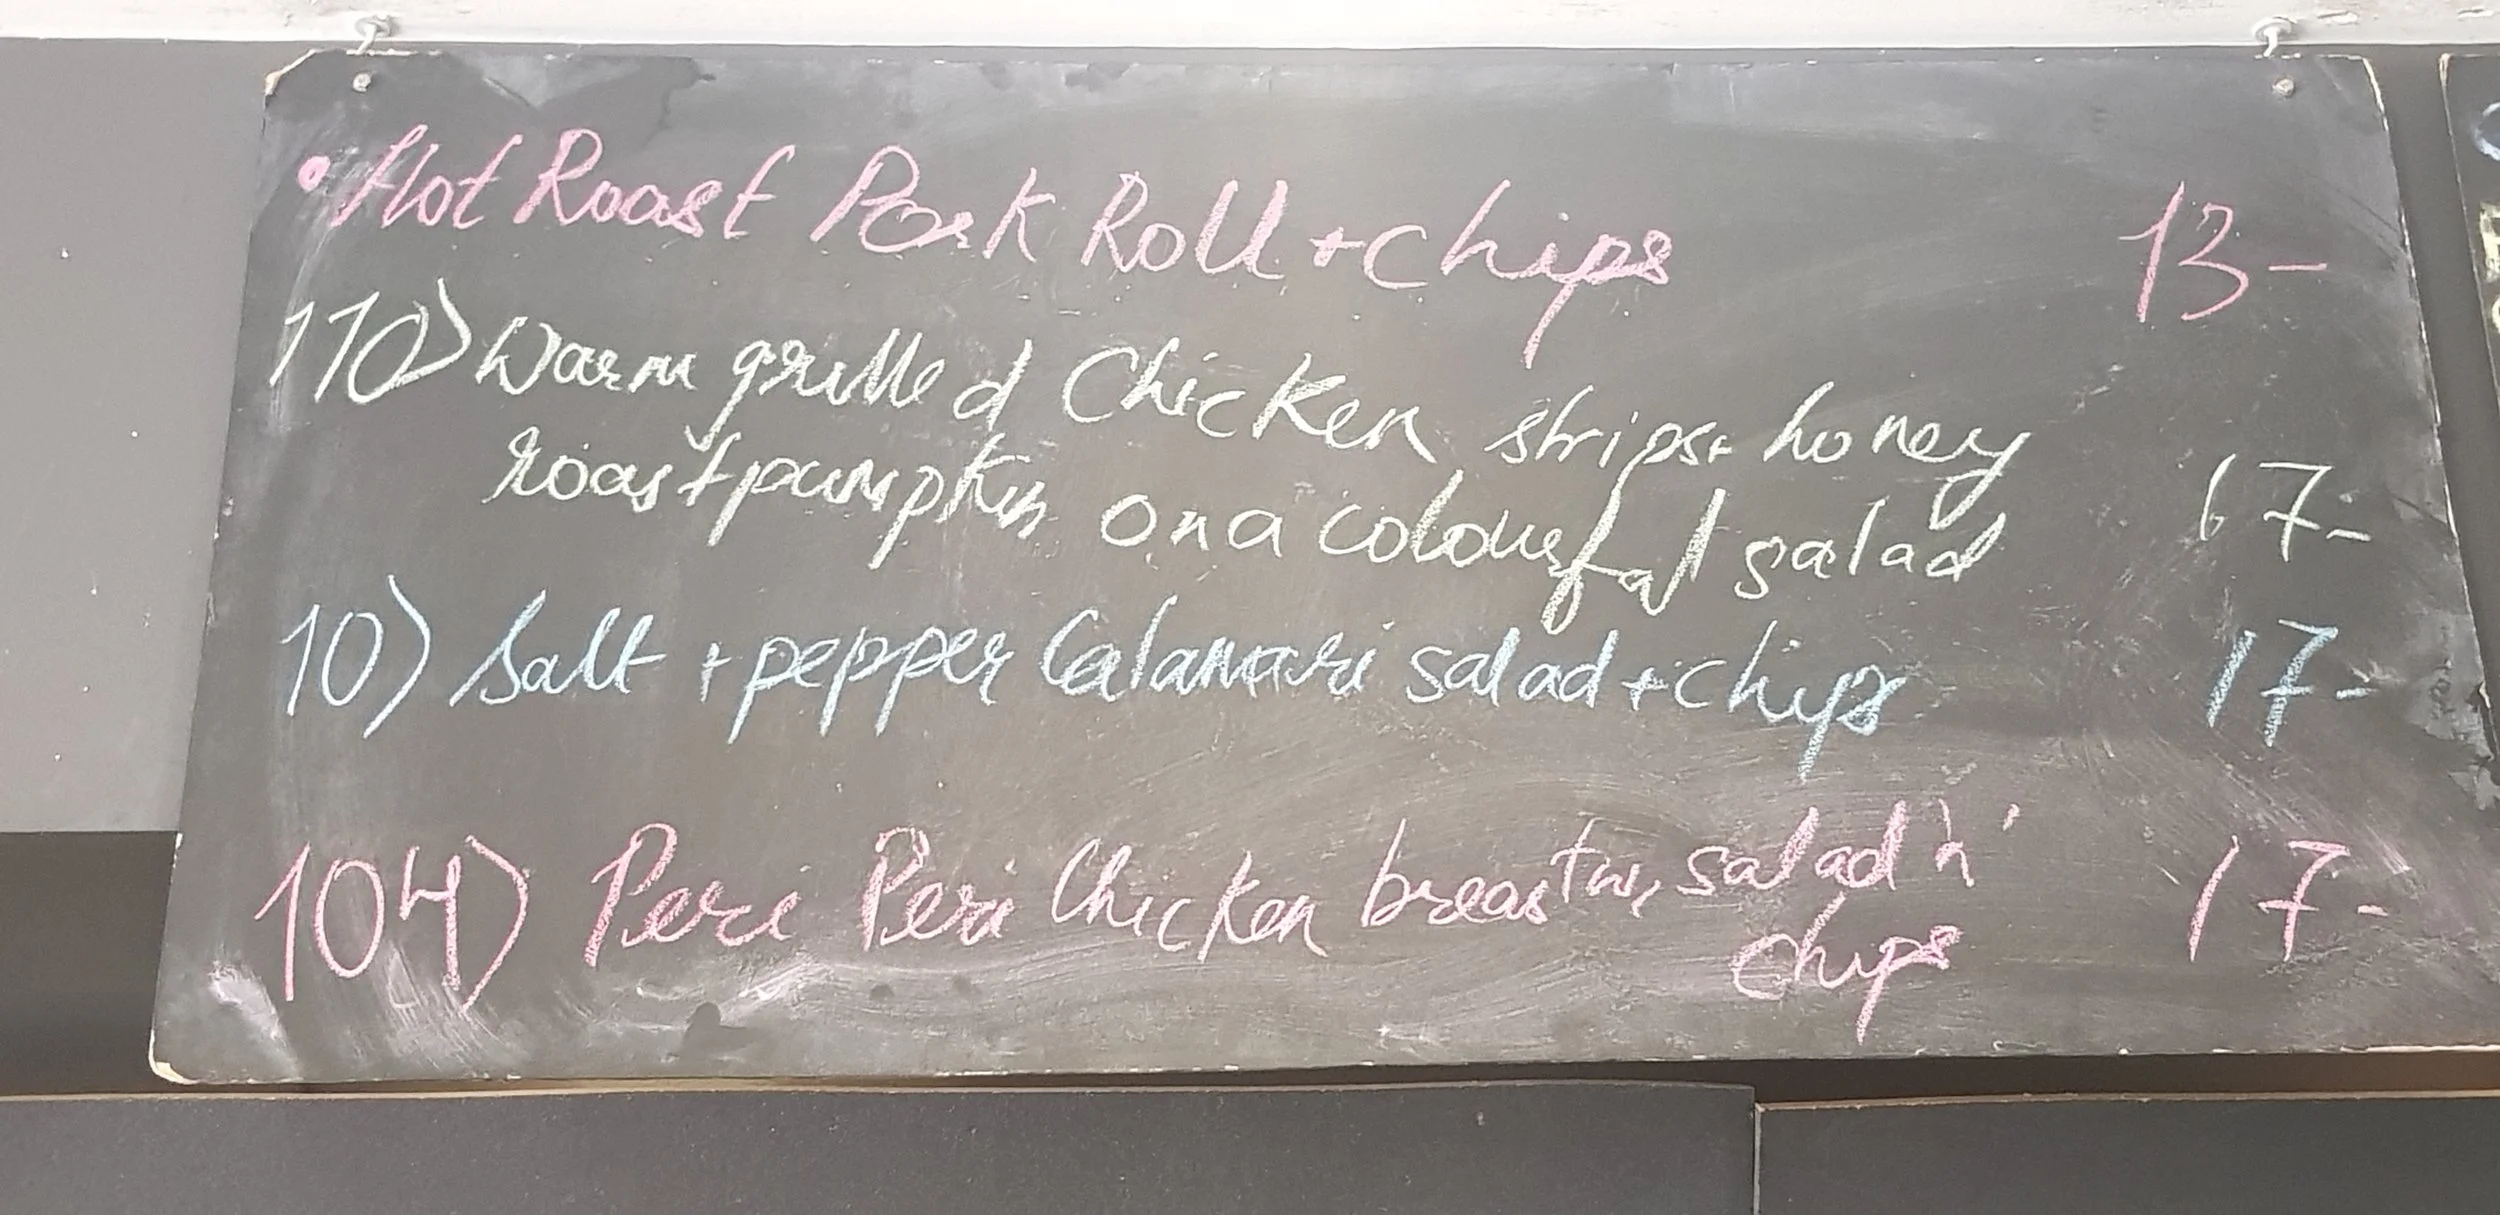 • Hot Roast Pork Roll + chips 13-
110) Warm grilled Chicken strips + honey
roast pumpkin on a colourful salad 17-
10) Salt + pepper Calamari salad + chips 17-
104) Peri Peri Chicken breast w, salad 'n'
chips 17-